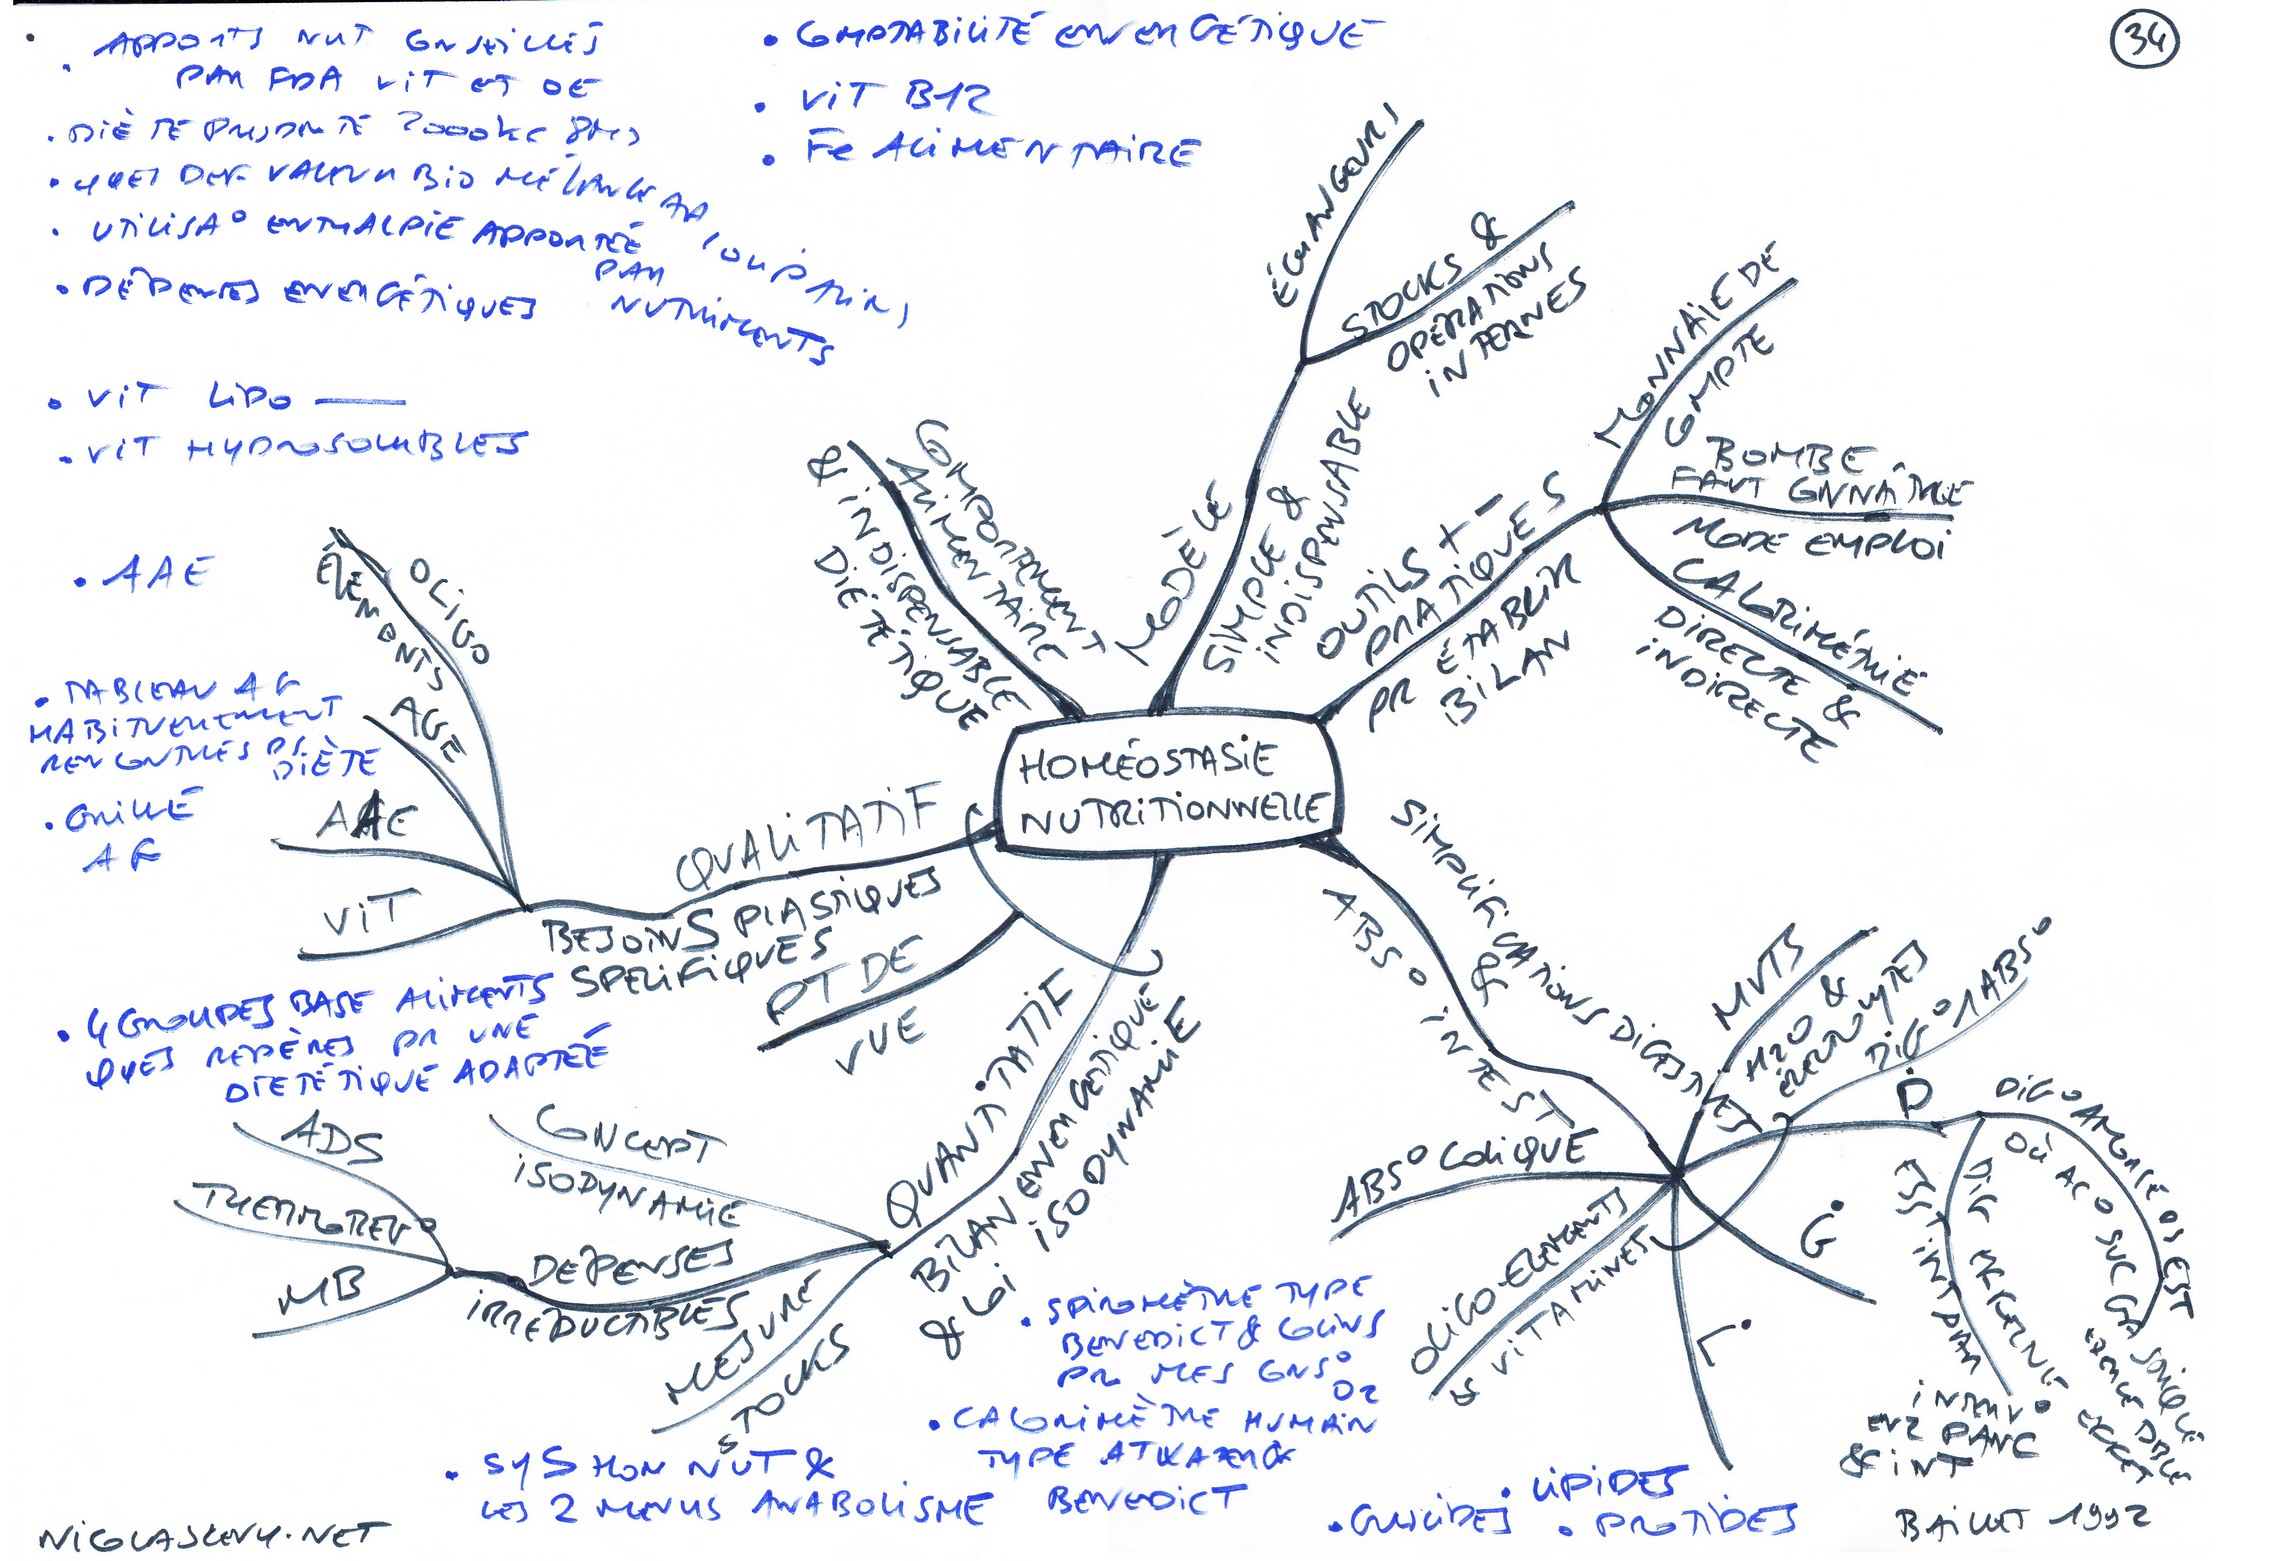 34
• APPORTS NUT CONSEILLÉS
PAR FDA VIT ET OE
• DIÈTE 2000 KC
• QUES DEF VALEUR BIO MÉLANGE AA
• UTILISA° ENTHALPIE APPORTÉE
PAR
NUTRIMENTS
• DÉPENSES ENERGÉTIQUES
• VIT LIPO —
• VIT HYDROSOLUBLES
• AAE
• TABLEAU AG
HABITUELLEMENT
RENCONTRÉS DS
DIÈTE
• GRILLE
AG
• COMPTABILITÉ ENERGÉTIQUE
• VIT B12
• Fe ALIMENTAIRE
HOMÉOSTASIE
NUTRITIONNELLE
COMPORTEMENT
ALIMENTAIRE
& INDISPENSABLE
DIÉTÉTIQUE
MODÈLE
SIMPLE &
INDISPENSABLE
ÉCHANGEURS
STOCKS &
OPÉRATIONS
INTERNES
OUTILS + -
PRATIQUES
PR ÉTABLIR
BILAN
MONNAIE DE
COMPTE
BOMBE
FAUT CONNAÎTRE
MODE EMPLOI
CALORIMÉTRIE
DIRECTE &
INDIRECTE
SIMPLIFICATIONS DIGESTIVES
&
ABS° INTEST
MVTS
H2O &
ÉLECTROLYTES
DIG° / ABS°
P
DIG° AMORCÉE DS EST
OÙ AC° SUC GA
DIG
ESST INT PAR
INTERV°
ENZ PANC
& INT
G
L
OLIGO-ELEMENTS
& VITAMINES
ABS° COLIQUE
QUALITATIF
BESOINS PLASTIQUES
SPECIFIQUES
OLIGO
ÉLEMENTS
AGE
AAE
VIT
PT DE
VUE
QUANTITATIF
BILAN ENERGETIQUE
& LOI
ISODYNAMIE
CONCEPT
ISODYNAMIE
DEPENSES
IRREDUCTIBLES
ADS
THERMOREG°
MB
MESURE
STOCKS
• 4 GROUPES BASE ALIMENTS
QUES REPÈRES PR UNE
DIETÉTIQUE ADAPTÉE
• SPIROMÈTRE TYPE
BENEDICT & COLLINS
PR MES CONS°
O2
• CALORIMÈTRE HUMAIN
TYPE ATWATER &
BENEDICT
• SYS HOM NUT &
LES 2 MENUS ANABOLISME
• LIPIDES
• GLUCIDES • PROTIDES
NICOLASLEVY.NET
BAILLET 1992